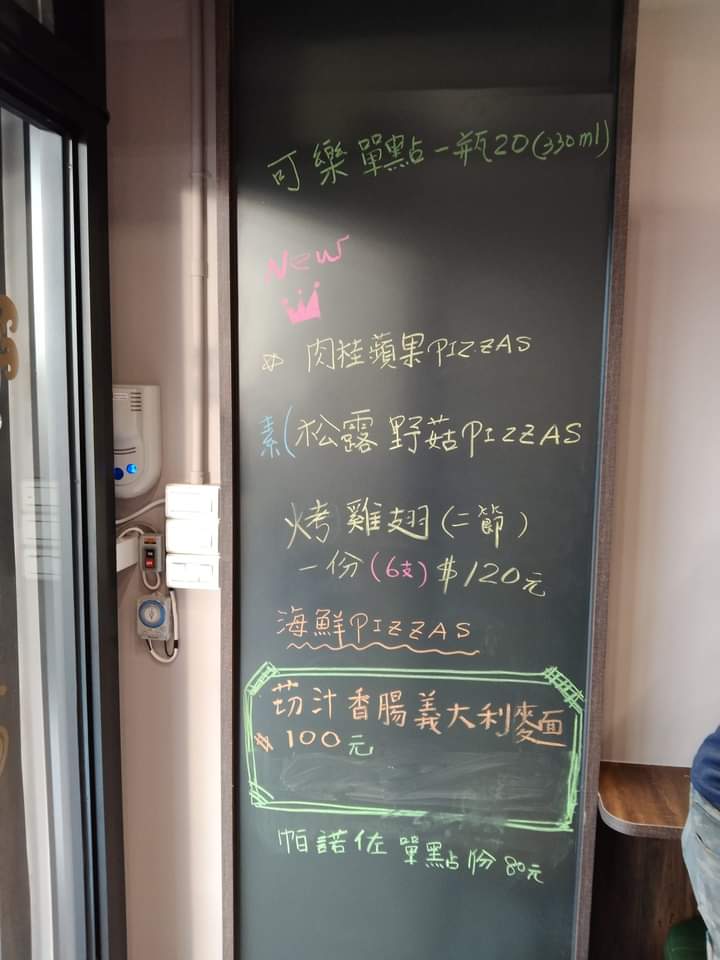 可樂單點一瓶20(330ml)
New
肉桂蘋果PIZZAS
素(松露野菇PIZZAS
烤雞翅(二節)
一份(6支)$120元
海鮮PIZZAS
茄汁香腸義大利麵
$100元
帕諾佐單點1份80元